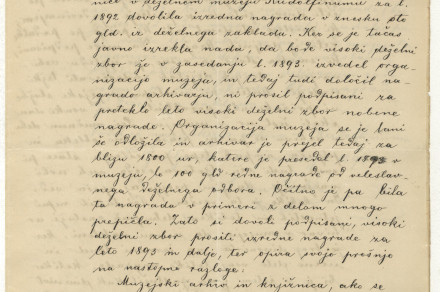 nice v deželnem muzeju Rudolfinumu za l.
1892 dovolila izredna nagrada v znesku sto
gld. iz deželnega zaklada. Ker se je tačas
javno izrekla nada, da bode visoki deželni
zbor že v zasedanju l. 1893. izvedel orga-
nizacijo muzeja, in tedaj tudi določil na-
grado arhivarju, ni prosil podpisani za
preteklo leto visoki deželni zbor nobene
nagrade. Organizacija muzeja se je lani
še odložila in arhivar je prejel tedaj za
blizu 1800 ur, katere je presedel l. 1893 v
muzeju, le 100 gld redne nagrade od veleslav-
nega deželnega odbora. Očitno je pa bila
ta nagrada v primeri z delom mnogo
prepičla. Zato si dovoli podpisani, visoki
deželni zbor prositi izredne nagrade za
leto 1893 in dalje, ter opira svojo prošnjo
na nastopne razloge.
Muzejski arhiv in knjižnica, ako se